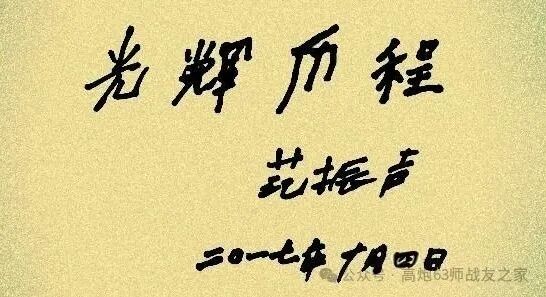 光辉历程
范振声
二〇一七年十月四日
公众号·高炮63师战友之家